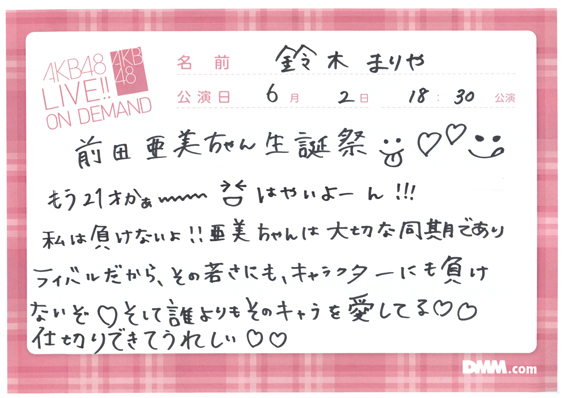 AKB48
LIVE!!
ON DEMAND
AKB
48
名前 鈴木まりや
公演日 6月 2日 18:30 公演
前田亜美ちゃん生誕祭
もう21才かぁ〰〰 はやいよーん!!!
私は負けないよ!!亜美ちゃんは大切な同期であり
ライバルだから、その若さにも、キャラクターにも負け
ないぞ♡そして誰よりもそのキャラを愛してる♡♡
仕切りできてうれしい♡♡
DMM.com